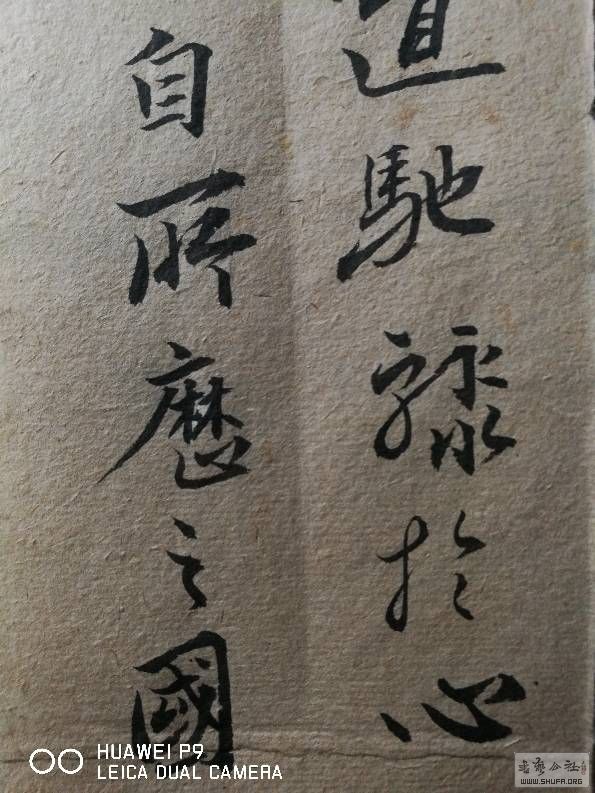 道馳驟於心
自所歷之國
HUAWEI P9
LEICA DUAL CAMERA
书艺公社
WWW.SHUFA.ORG